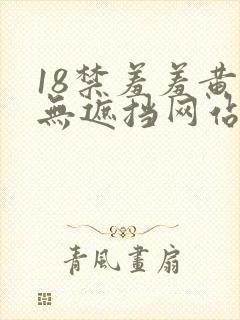 18禁羞羞黄
無遮挡网站
青風畫扇